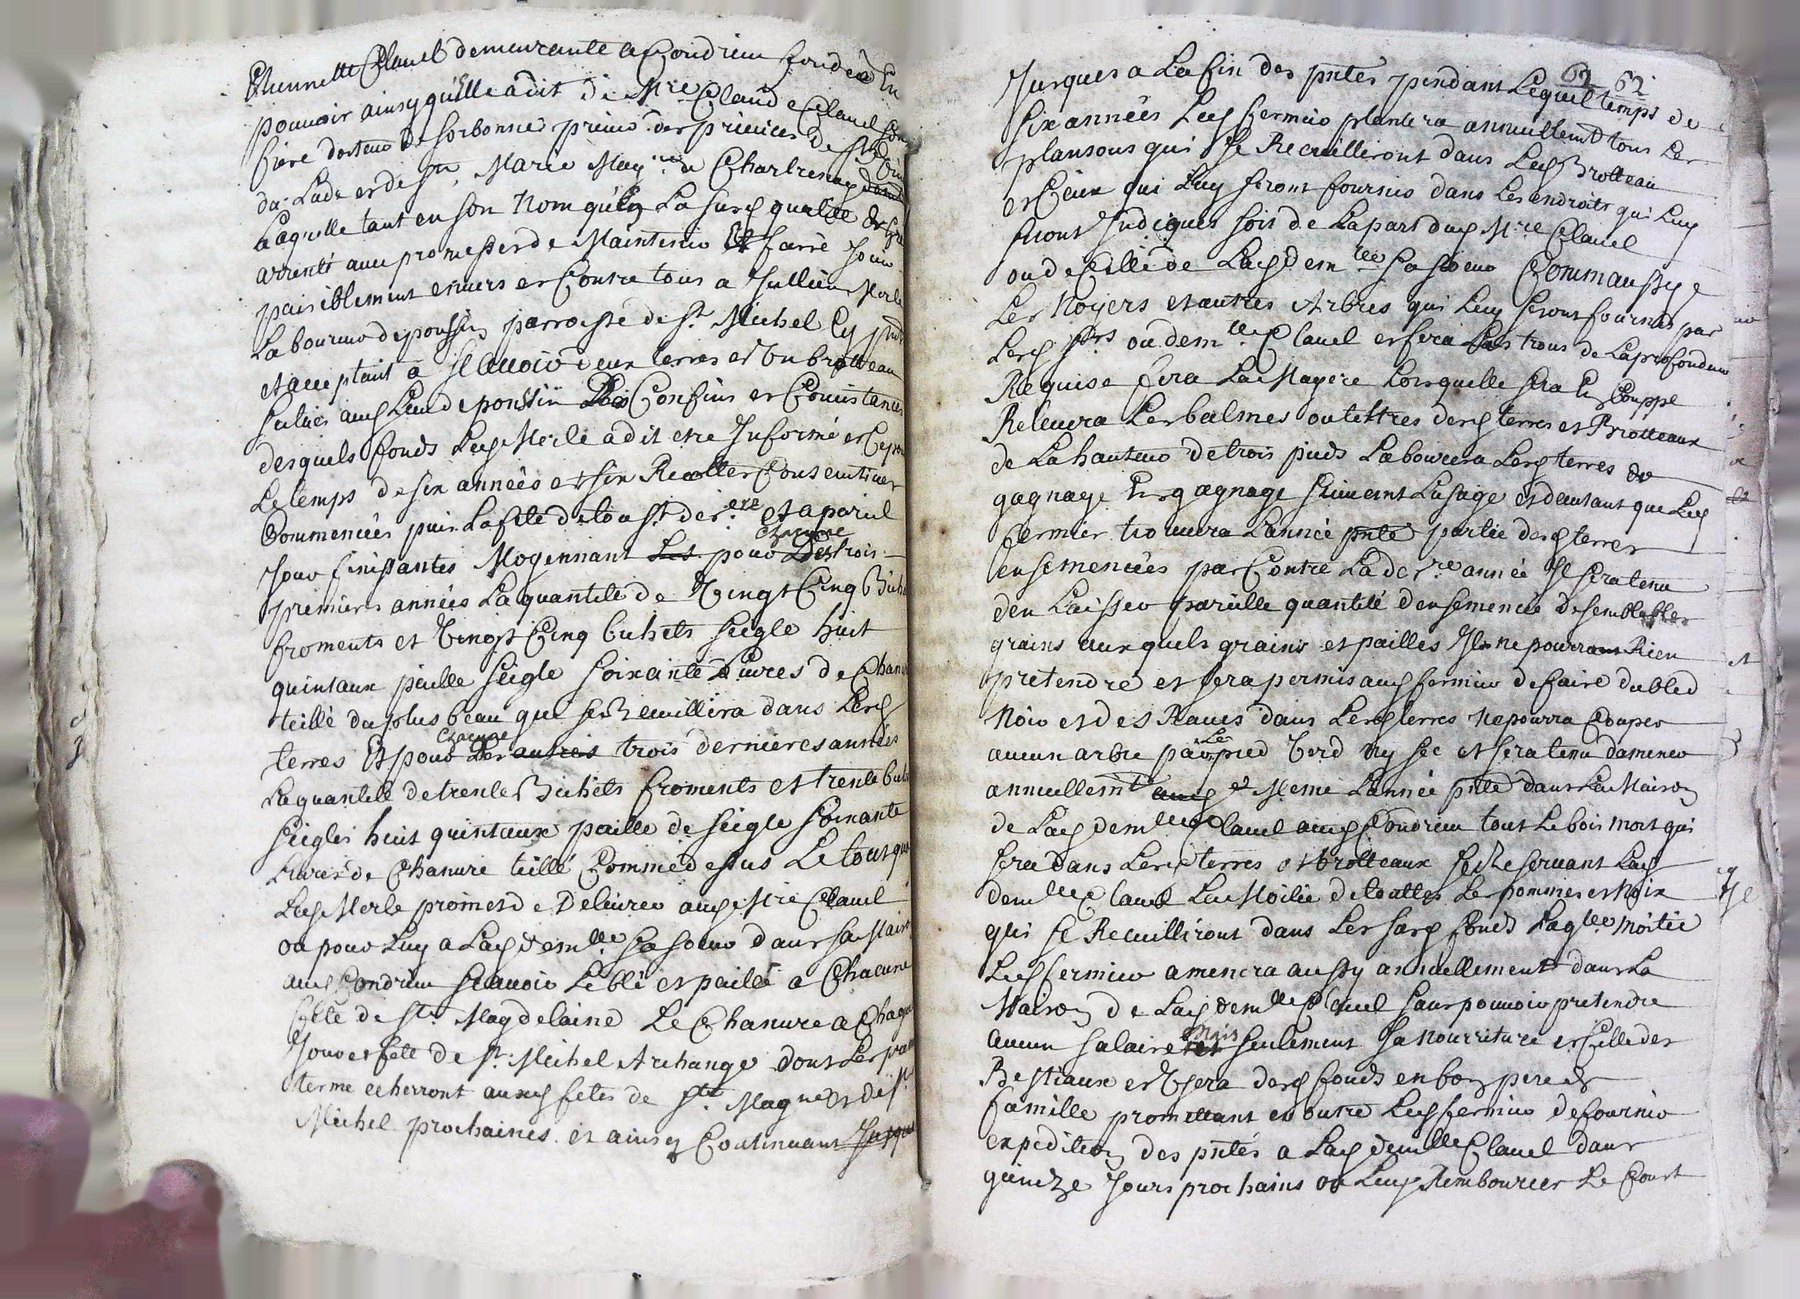 Etiennette Clavel demeurante a Condrieu fondée En
pouvoir ainsy qu'Elle a dit de Mre Claude Clavel son
frere docteur de sorbonne prieur des prieurés de
du Lade et de Ste Marie Mag.ne
Laquelle tant en son Nom qu'En La susd qualité
arrenté avec promesse de Maintenir Et faire Jouir
paisiblement envers et Contre tous a Jullien Merle
Laboureur de poussin parroisse de St Michel Cy pnt
et acceptant a sçavoir deux terres et Un brotteau
situés aud Lieu de poussin Les Confins et Consistances
desquels fonds Led Merle a dit etre Informé et Ce pour
Le temps de six années et six Recoltes Consecutives
Commencées puis La fete de toust dere et a pareil
Chacune
Jour finissantes Moyennant Les pour Des trois
premieres années La quantité de Vingt Cinq Bichets
froments et Vingt Cinq bichets seigle huit
quintaux paille seigle soixante Livres de Chanvre
teillé du plus beau que se Recuillira dans Lesd
Chacune
terres Et pour Les autres trois dernieres années
La quantité de trente Bichets froments et trente bichets
seigles huit quintaux paille de seigle soixante
Livres de Chanvre teillé Comme dessus Le tout que
Led Merle promet de Delivrer aud Mre Clavel
ou pour Luy a Lad demlle sa soeur dans sa Maison
aud Condrieu sçavoir Le blé et paille a Chacune
fete de Ste Magdelaine Le Chanvre a Chaque
Jour et fete de St Michel Archange dont Les premiers
terme echerront auxd fetes de Ste Magne et de St
Michel prochaines et ainsy Continuant Jusques
62 62
Jusques a La fin des pntes pendant Lequel temps de
six années Led fermier plantera annuellemt tous Les
plansons qui se Recuilliront dans Led Brotteau
et Ceux qui Luy seront fournis dans Les endroits qui Luy
seront Indiqués soit de La part dud Mre Clavel
ou de Celle de Lad demlle sa soeur Comm aussy
Les Noyers et autres Arbres qui Luy seront fournis par
Lesd srs ou demlle Clavel et fera Les trous de La profondeur
Requise fera La Nayere Lorsquelle sera En Couppe
Relevera Les balmes ou tettres desd terres et Brotteaux
de La hauteur de trois pieds Labourera Lesd terres de
gagnage En gagnage suivant Lusage et dautant que Led
fermier trouvera L'année pnte partie desd terres
ensemencées par Contre La derre année Il sera tenu
den Laisser pareille quantité d'ensemencée de semblables
grains auxquels grains et pailles Il ne pourra Rien
pretendre et sera permis aud fermier de faire du bled
Noir et des Raves dans Lesd terres ne pourra Couper
Le
aucun arbre par pied Verd ny sec et sera tenu damener
annuellemt aud et Meme L'année pnte dans La Maison
de Lad demlle Clavel aud Condrieu tout Le bois mort qui
sera dans Lesd terres et brotteaux se Reservant Lad
demlle Clavel La Moitié de toutes Les pommes et Noix
qui se Recuilliront dans Les susd fonds Laqlle moitié
Led fermier amenera aussy annuellement dans La
Maison de Lad demlle Clavel sans pouvoir pretendre
Mais
aucun salaire seulement sa nourriture et Celle des
Bestiaux et Usera desd fonds en bon pere de
famille promettant en outre Led fermier de fournir
expedition des pntes a Lad demlle Clavel dans
quinze Jours prochains ou Luy Rembourcer Le Coust